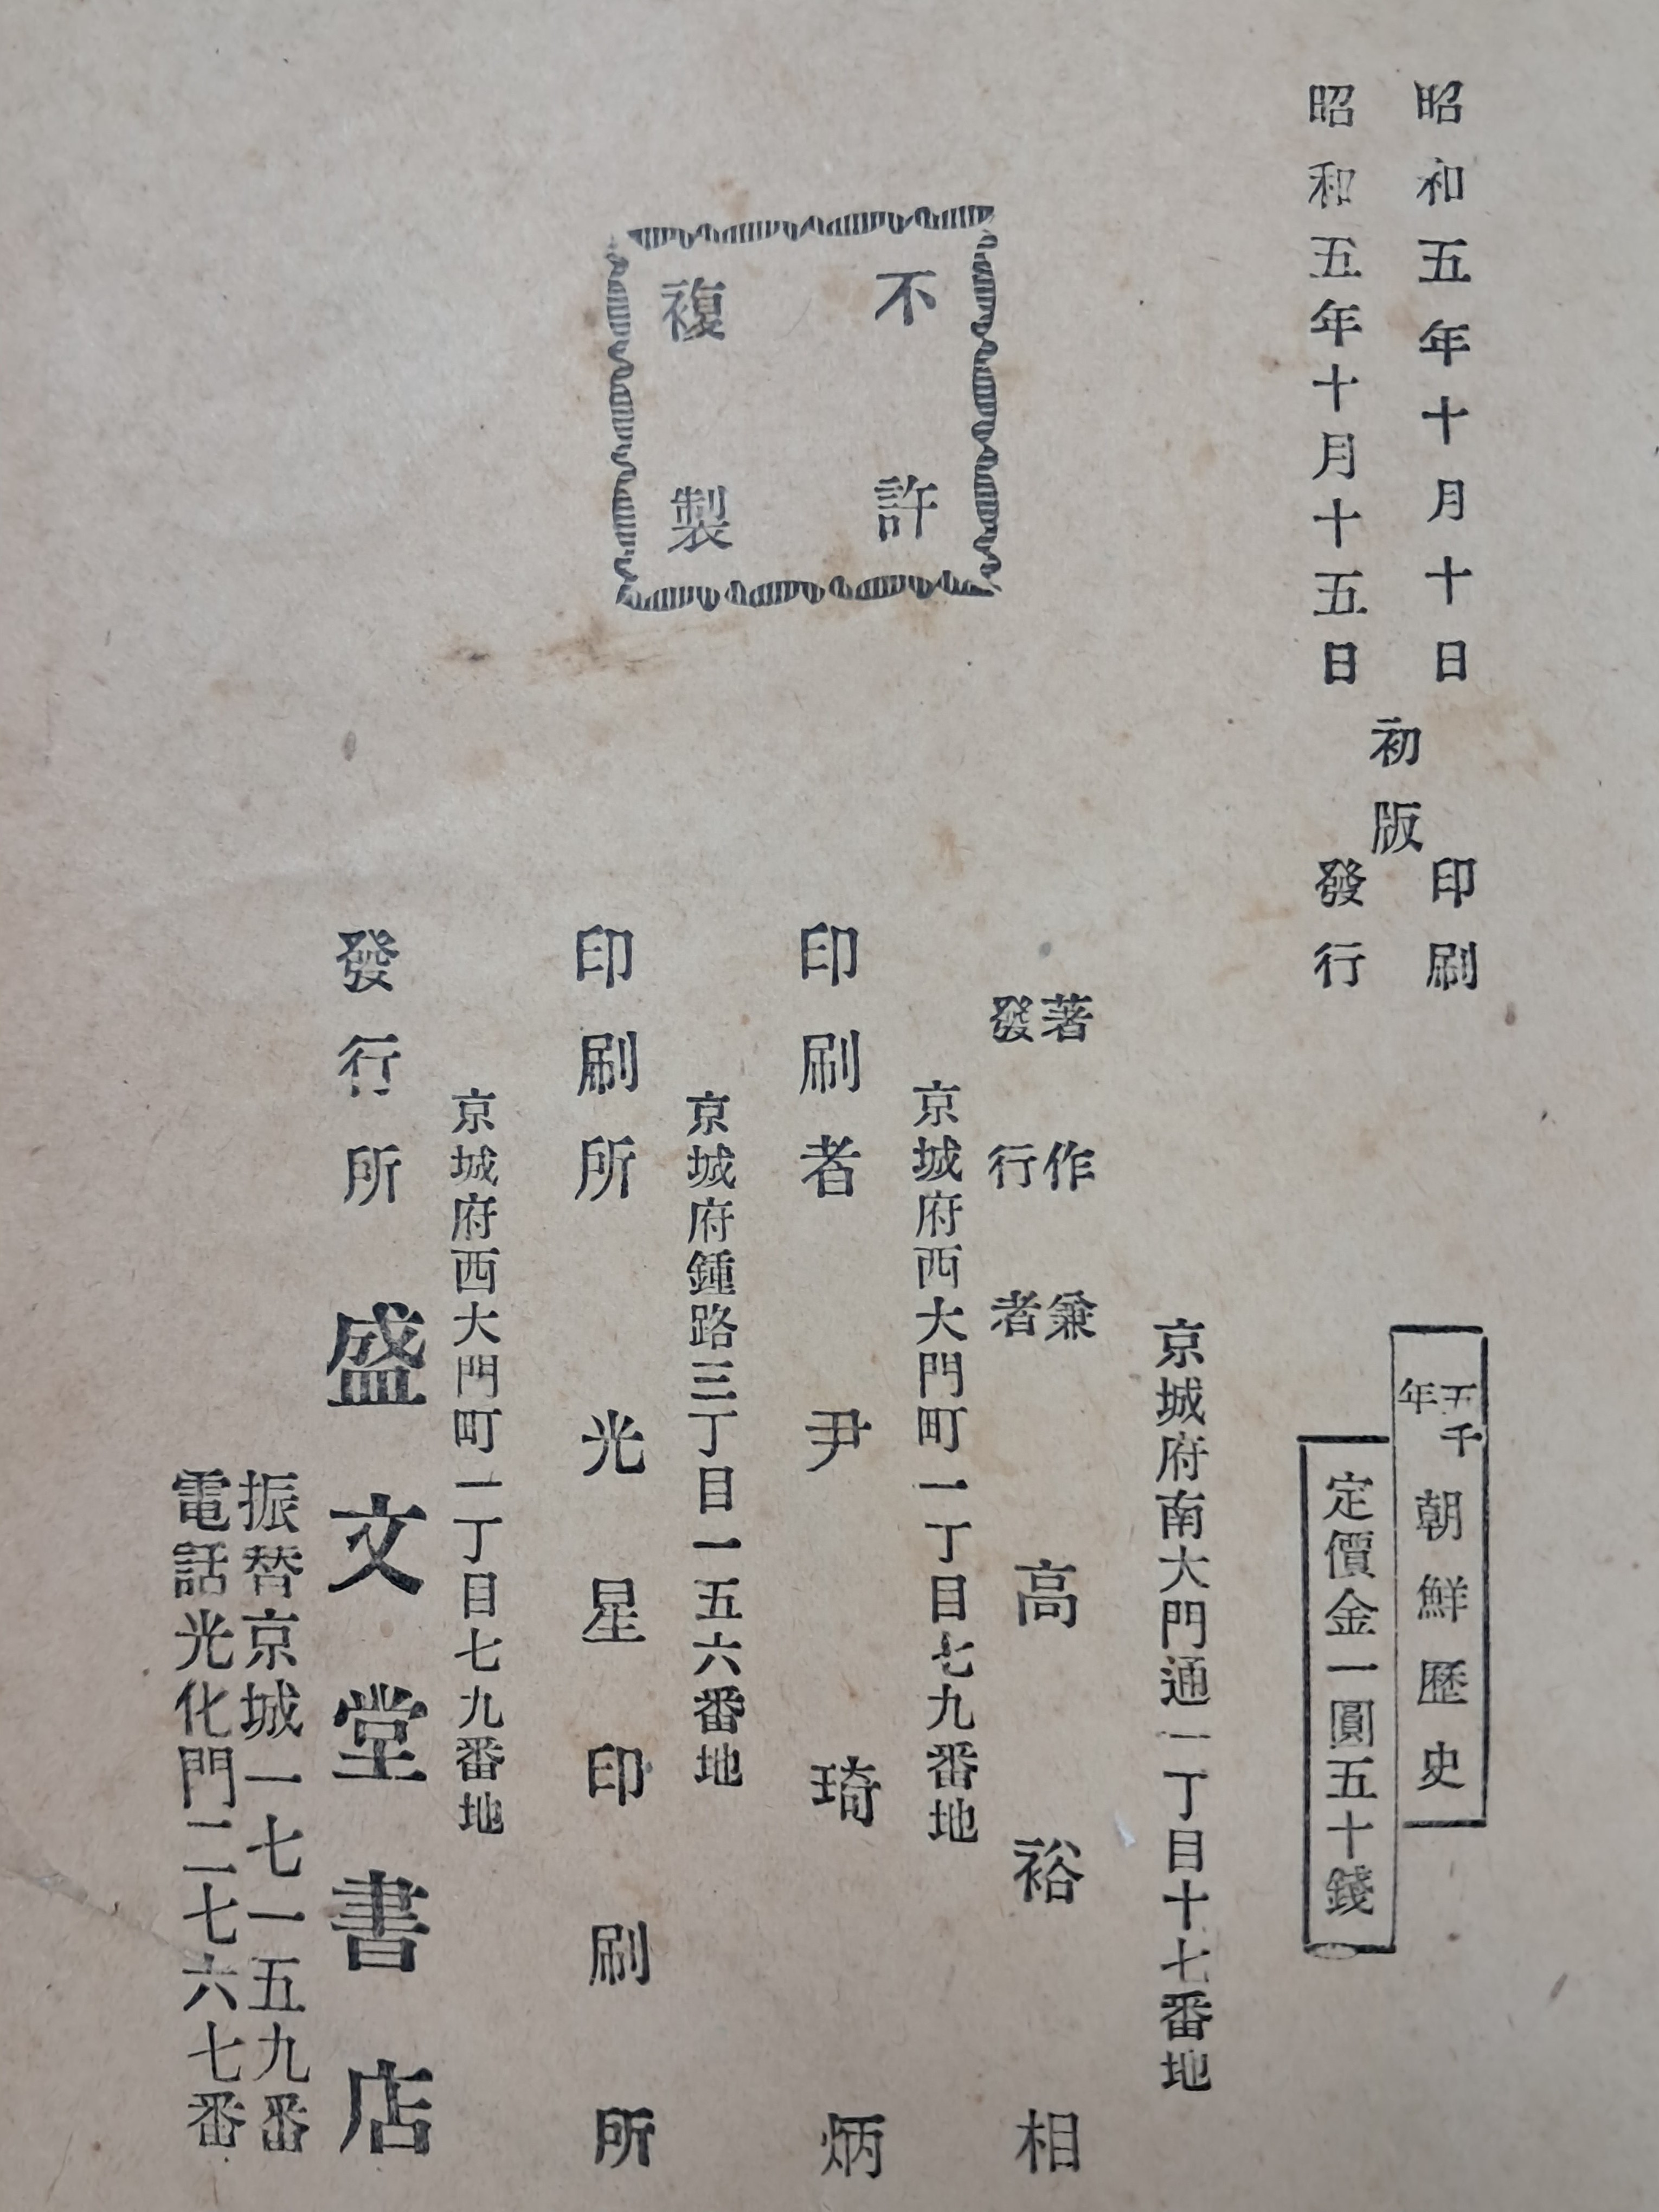 昭和五年十月十日
昭和五年十月十五日
初版
印刷
發行
五千年
朝鮮歷史
定價金一圓五十錢
不許
複製
京城府南大門通一丁目十七番地
著作兼
發行者
高裕相
京城府西大門町一丁目七九番地
印刷者 尹琦炳
京城府鍾路三丁目一五六番地
印刷所 光星印刷所
京城府西大門町一丁目七九番地
發行所 盛文堂書店
振替京城一七一五九番
電話光化門二七六七番